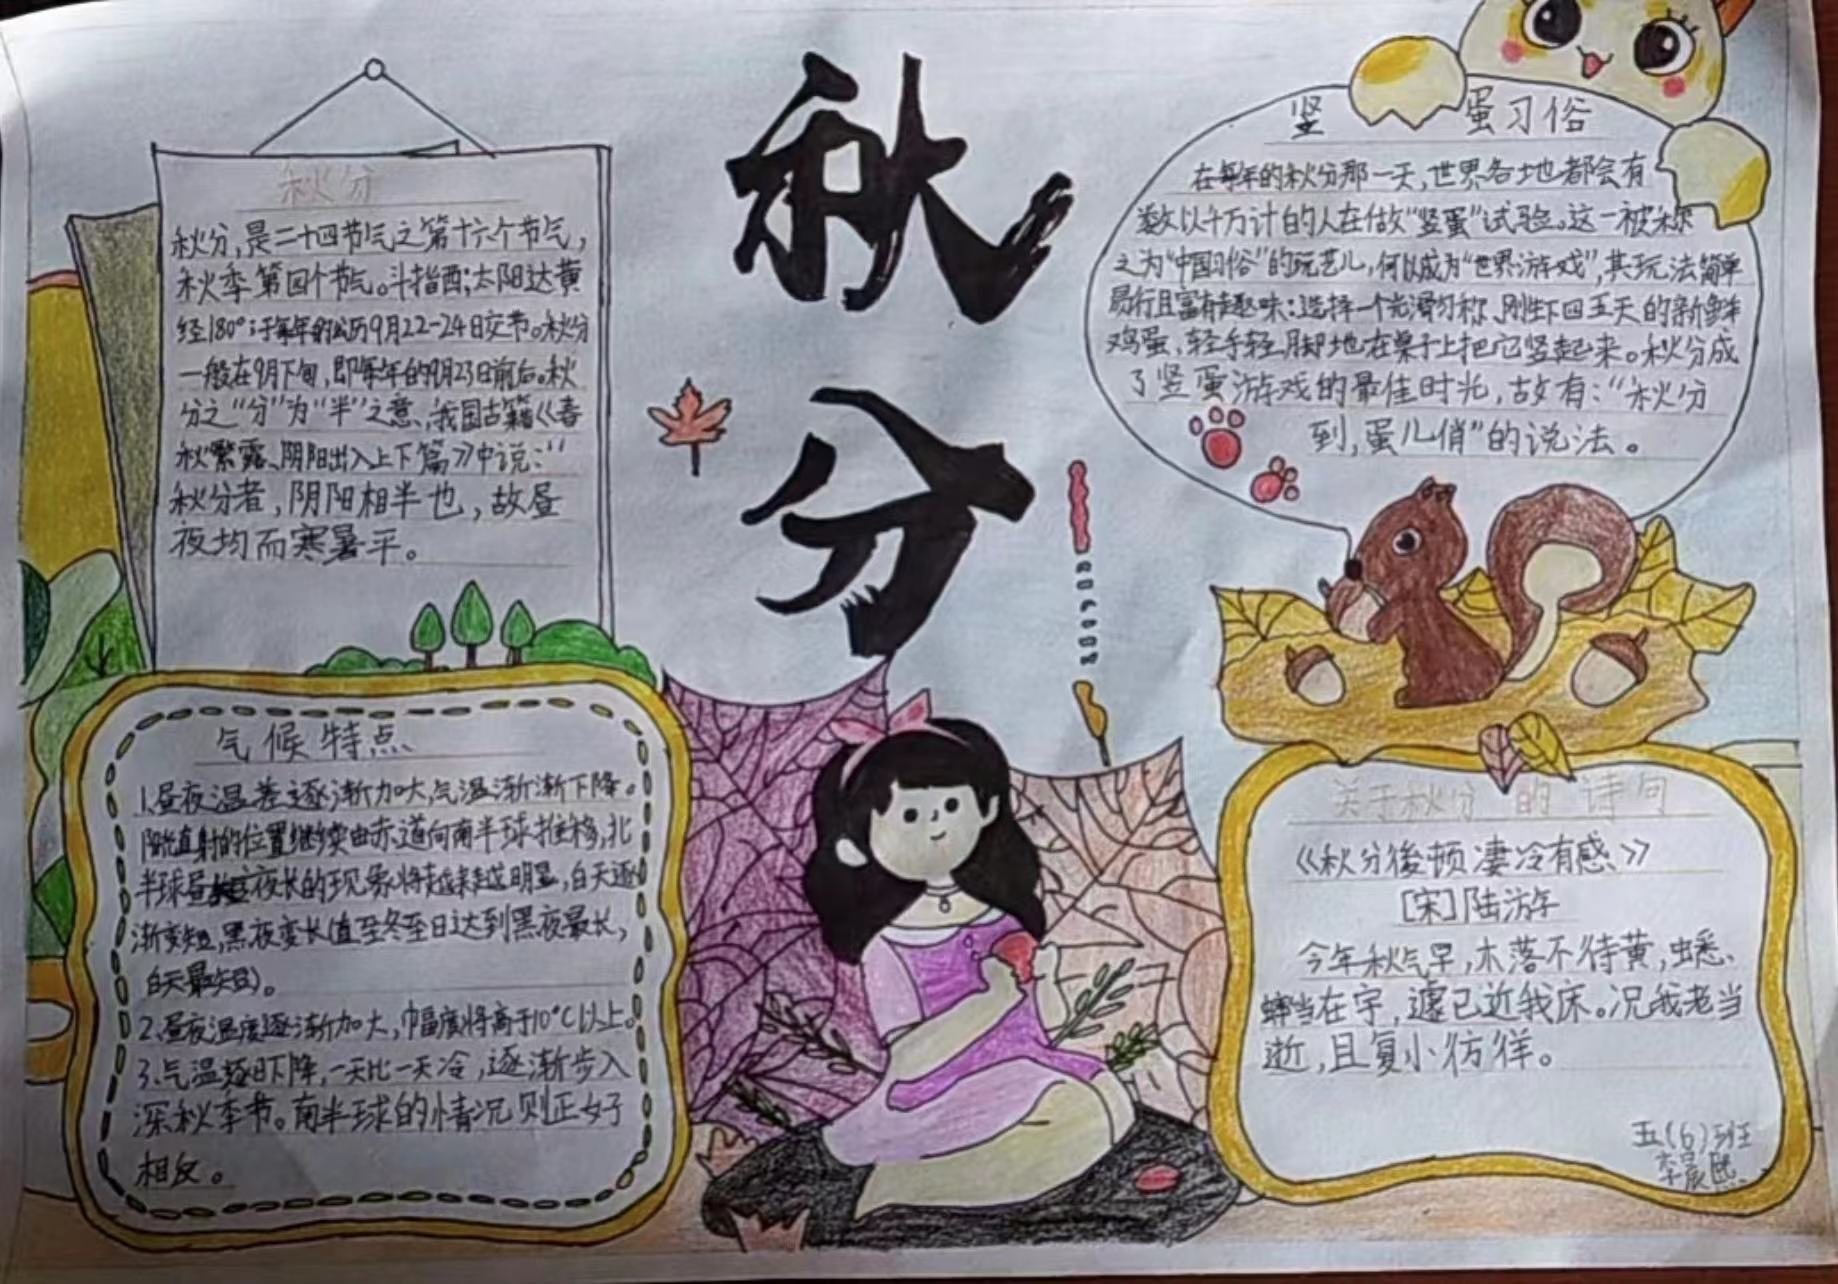 秋分
秋分
秋分,是二十四节气之第十六个节气,
秋季第四个节气。斗指酉;太阳达黄
经180°;于每年的公历9月22-24日交节。秋分
一般在9月下旬,即每年的9月23日前后。秋
分之“分”为“半”之意、我国古籍《春
秋繁露、阴阳出入上下篇》中说:“
秋分者,阴阳相半也,故昼
夜均而寒暑平。
竖 蛋习俗
在每年的秋分那一天,世界各地都会有
数以千万计的人在做“竖蛋”试验。这一被称
之为“中国习俗”的玩艺儿,何以成为“世界游戏”,其玩法简单
易行且富有趣味:选择一个光滑匀称、刚生下四五天的新鲜
鸡蛋,轻手轻脚地在桌子上把它竖起来。秋分成
了竖蛋游戏的最佳时光,故有:“秋分
到,蛋儿俏”的说法。
气候特点
1.昼夜温差逐渐加大,气温渐渐下降。
阳光直射的位置继续由赤道向南半球推移,北
半球昼短夜长的现象将越来越明显,白天逐
渐变短,黑夜变长(直至冬至日达到黑夜最长,
白天最短)。
2.昼夜温度逐渐加大,幅度将高于10°C以上。
3.气温逐日下降,一天比一天冷,逐渐步入
深秋季节。南半球的情况则正好
相反。
关于秋分的诗句
《秋分後顿凄冷有感》
[宋]陆游
今年秋气早,木落不待黄,蟋
蟀当在宇,遽已近我床。况我老当
逝,且复小彷徉。
五(6)班